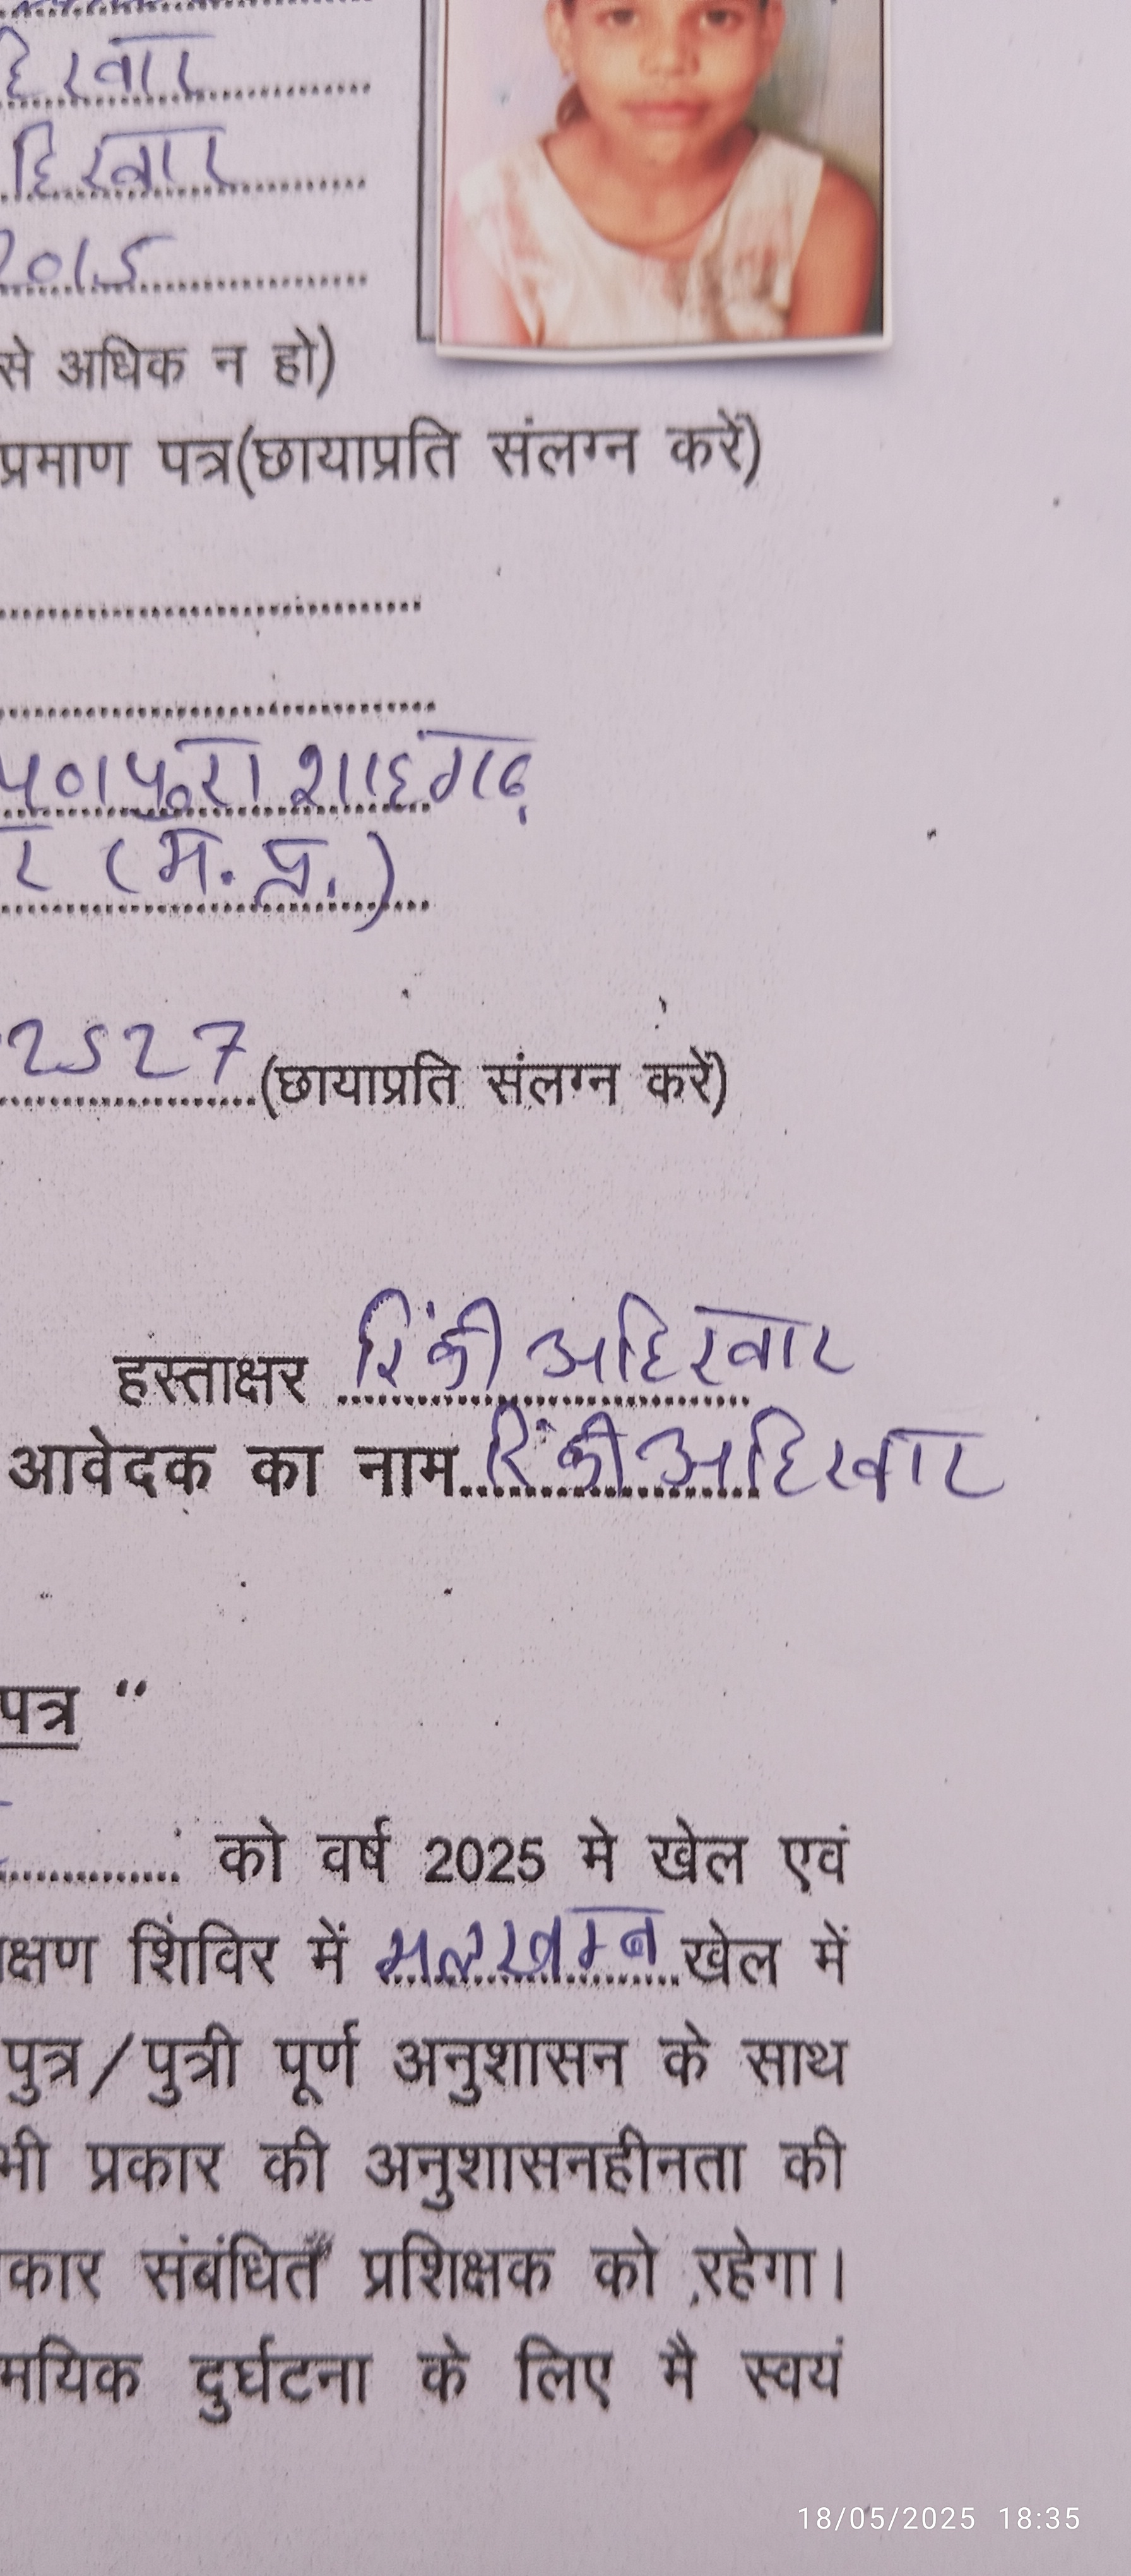 हिरवार
हिरवार
2015
से अधिक न हो)
प्रमाण पत्र(छायाप्रति संलग्न करें)
शाहगढ़
र (म.प्र.)
2527 (छायाप्रति संलग्न करें)
हस्ताक्षर रिंकी अहिरवार
आवेदक का नाम रिंकी अहिरवार
पत्र “
को वर्ष 2025 मे खेल एवं
क्षण शिंविर में मलखम्ब खेल में
पुत्र/पुत्री पूर्ण अनुशासन के साथ
भी प्रकार की अनुशासनहीनता की
कार संबंधित प्रशिक्षक को रहेगा।
मयिक दुर्घटना के लिए मै स्वयं
18/05/2025 18:35